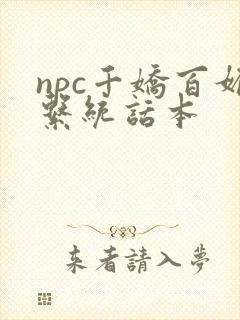 npc千嬌百媚
繫統話本
来者請入夢